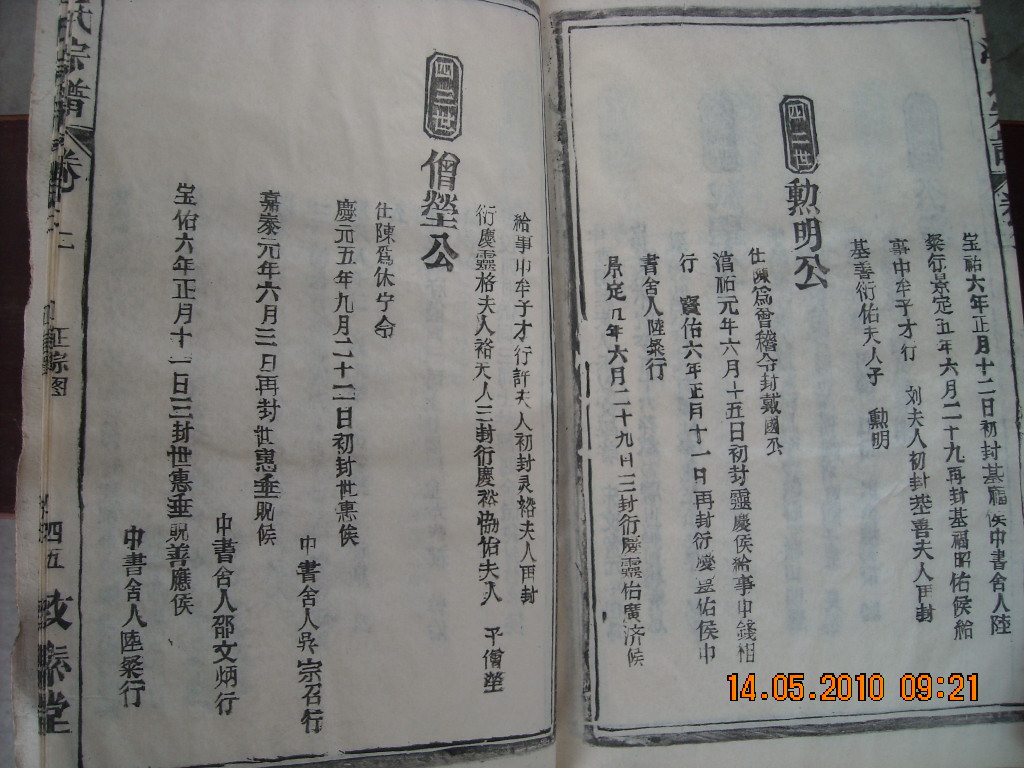 宝祐六年正月十二日初封基福侯中書舍人陸
粲行景定五年六月二十九再封基福昭佑侯給
事中牟子才行 刘夫人初封基善夫人再封
基善衍佑夫人子 勲明
四二世 勲明公
仕陳爲曾稽令封戴國公
淯祐元年六月十五日初封靈慶侯給事中錢相
行 寳佑六年正月十一日再封衍慶靈佑侯中
書舍人陸粲行
景定几年六月二十九日三封衍慶靈佑廣济侯
給事中牟子才行許夫人初封灵裕夫人再封
衍慶靈格夫人裕夫人三封衍慶裕協佑夫人 子僧塋
四三世 僧塋公
仕陳爲休宁令
慶元五年九月二十二日初封世惠侯
中書舍人吳宗召行
嘉泰元年六月三日再封世惠垂貺侯
中書舍人邵文炳行
宝佑六年正月十二日三封世惠垂貺善應侯
中書舍人陸粲行
氏宗譜 卷之二 正宗图 四五 堂
14.05.2010 09:21